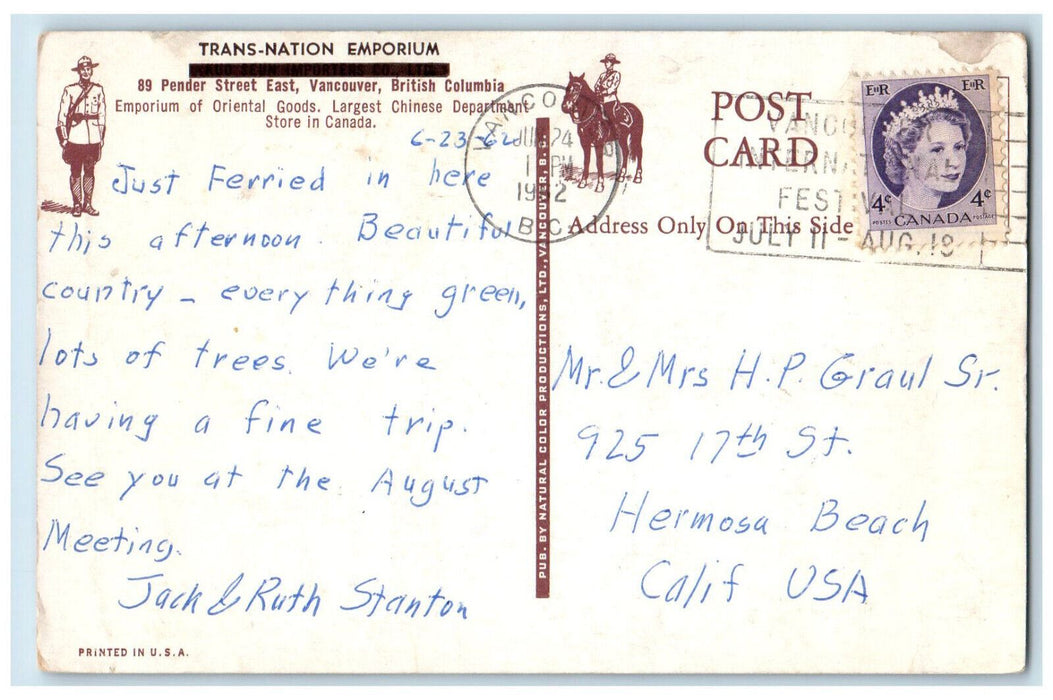 TRANS-NATION EMPORIUM
IMPORTERS CO., LTD.
89 Pender Street East, Vancouver, British Columbia
Emporium of Oriental Goods. Largest Chinese Department
Store in Canada.
6-23-62
Just Ferried in here
this afternoon. Beautiful
country - every thing green,
lots of trees. We're
having a fine trip.
See you at the August
Meeting.
Jack & Ruth Stanton
PRINTED IN U.S.A.
PUB. BY NATURAL COLOR PRODUCTIONS, LTD., VANCOUVER, B.C.
VANCO
JUN 24
PM
1962
B.C.
POST
CARD
Address Only On This Side
VANCO
INTERNATIONAL
FESTIVAL
JULY 11 - AUG. 18
EIIR EIIR
4¢ 4¢
POSTES CANADA POSTAGE
Mr. & Mrs H.P. Graul Sr.
925 17th St.
Hermosa Beach
Calif USA